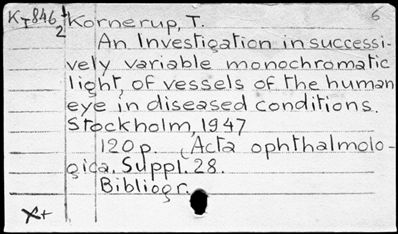 K_T846 / 2
Kornerup, T.
An Investigation in successi-
vely variable monochromatic
light, of vessels of the human
eye in diseased conditions.
Stockholm, 1947
120 p. (Acta ophthalmolo-
gica. Suppl. 28.
Bibliogr.
6
X+